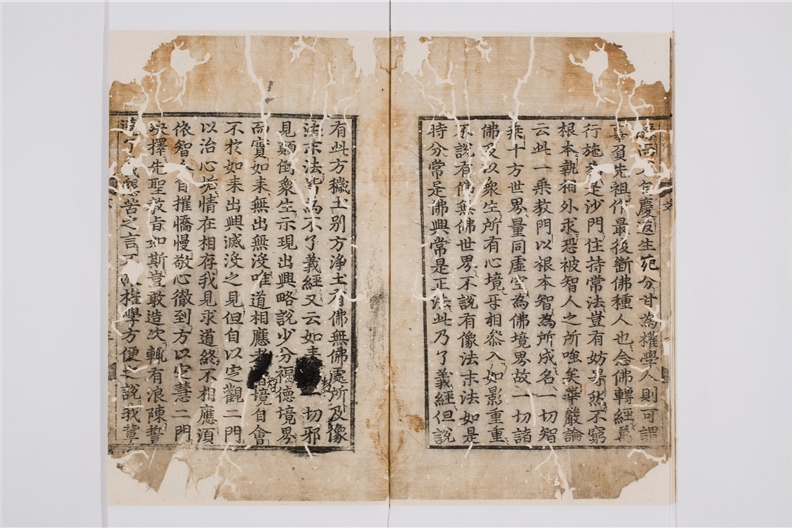 不生慶返生死分甘為權學人則可謂
辜負先祖作最後斷佛種人也念佛轉經萬
行施為是沙門住持常法豈有妨㝵然不窮
根本執相外求恐被智人之所嗤矣華嚴論
云此一乘教門以根本智為所成名一切智
乘十方世界量同虛空為佛境界故一切諸
佛及以衆生所有心境互相叅入如影重重
不說有佛無佛世界不說有像法末法如是
時分常是佛興常是正法此乃了義經但說
有此方穢土別方淨土有佛無佛處所及像
法末法皆為不了義經又云如来一切邪
見顛倒衆生示現出興略說少分福德境界
而實如来無出無没唯道相應者境自會
不於如来出興滅没之見但自以定觀二門
以治心垢情在相存我見求道終不相應湏
依智人自摧憍慢敬心徹到方以定慧二門
決擇先聖教旨如斯豈敢造次輒有浪陳誓
遵了義懇苦之言不權學方便之說我輩